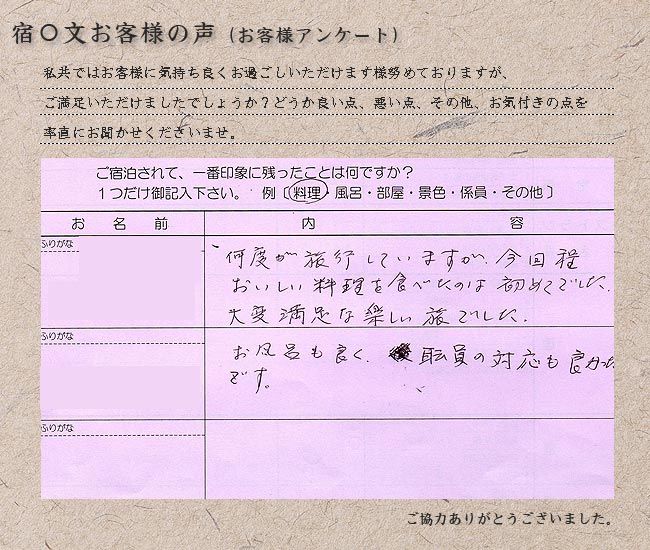 宿〇文お客様の声（お客様アンケート）
私共ではお客様に気持ち良くお過ごしいただけます様努めておりますが、
ご満足いただけましたでしょうか？どうか良い点、悪い点、その他、お気付きの点を
率直にお聞かせくださいませ。
ご宿泊されて、一番印象に残ったことは何ですか？
１つだけ御記入下さい。 例〔料理・風呂・部屋・景色・係員・その他〕
お名前 内容
ふりがな
何度か旅行していますが、今回程
おいしい料理を食べたのは初めてでした。
大変満足な楽しい旅でした。
ふりがな
お風呂も良く、職員の対応も良かった
です。
ふりがな
ご協力ありがとうございました。